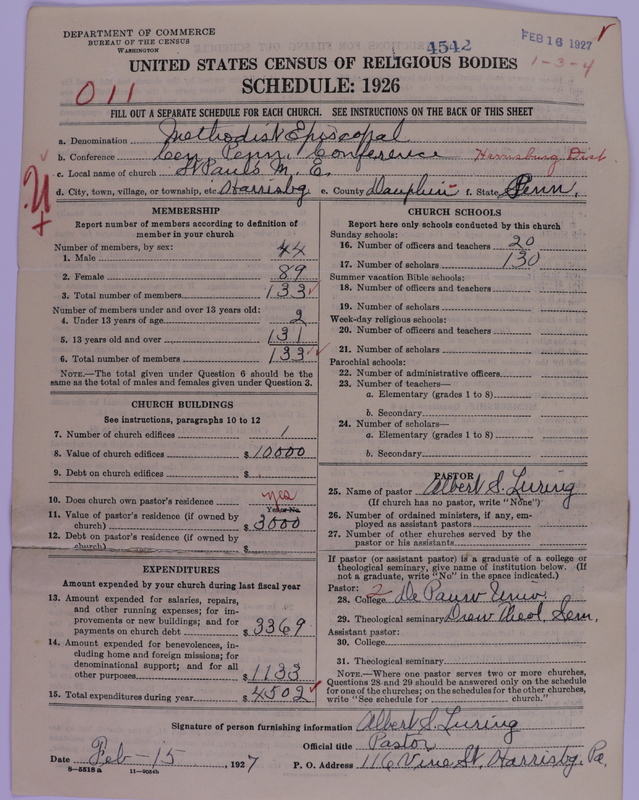 DEPARTMENT OF COMMERCE
BUREAU OF THE CENSUS
WASHINGTON
4542
FEB 16 1927
1-3-4
UNITED STATES CENSUS OF RELIGIOUS BODIES
SCHEDULE: 1926
011
FILL OUT A SEPARATE SCHEDULE FOR EACH CHURCH. SEE INSTRUCTIONS ON THE BACK OF THIS SHEET
a. Denomination Methodist Episcopal
b. Conference Cen. Penn. Conference Harrisburg Dist
c. Local name of church St Pauls M. E.
d. City, town, village, or township, etc. Harrisbg e. County Dauphin f. State Penn.
MEMBERSHIP
Report number of members according to definition of member in your church
Number of members, by sex:
1. Male 44
2. Female 89
3. Total number of members 133
Number of members under and over 13 years old:
4. Under 13 years of age 2
5. 13 years old and over 131
6. Total number of members 133
NOTE.—The total given under Question 6 should be the same as the total of males and females given under Question 3.
CHURCH BUILDINGS
See instructions, paragraphs 10 to 12
7. Number of church edifices 1
8. Value of church edifices $ 10000
9. Debt on church edifices $
10. Does church own pastor's residence yes
Yes or No
11. Value of pastor's residence (if owned by church) $ 3000
12. Debt on pastor's residence (if owned by church) $
EXPENDITURES
Amount expended by your church during last fiscal year
13. Amount expended for salaries, repairs, and other running expenses; for improvements or new buildings; and for payments on church debt $ 3369
14. Amount expended for benevolences, including home and foreign missions; for denominational support; and for all other purposes $ 1133
15. Total expenditures during year $ 4502
CHURCH SCHOOLS
Report here only schools conducted by this church
Sunday schools:
16. Number of officers and teachers 20
17. Number of scholars 130
Summer vacation Bible schools:
18. Number of officers and teachers
19. Number of scholars
Week-day religious schools:
20. Number of officers and teachers
21. Number of scholars
Parochial schools:
22. Number of administrative officers
23. Number of teachers—
a. Elementary (grades 1 to 8)
b. Secondary
24. Number of scholars—
a. Elementary (grades 1 to 8)
b. Secondary
PASTOR
25. Name of pastor Albert S. Luring
(If church has no pastor, write "None")
26. Number of ordained ministers, if any, employed as assistant pastors
27. Number of other churches served by the pastor or his assistants
If pastor (or assistant pastor) is a graduate of a college or theological seminary, give name of institution below. (If not a graduate, write "No" in the space indicated.)
Pastor: 2
28. College De Pauw Univ.
29. Theological seminary Drew Theol. Sem.
Assistant pastor:
30. College
31. Theological seminary
NOTE.—Where one pastor serves two or more churches, Questions 28 and 29 should be answered only on the schedule for one of the churches; on the schedules for the other churches, write "See schedule for church."
Signature of person furnishing information Albert S. Luring
Official title Pastor
Date Feb-15, 1927 P. O. Address 116 Vine St. Harrisbg. Pa.
8-5518a 11-9054b